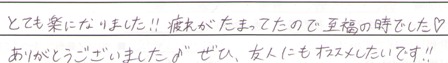 とても楽になりました!! 疲れがたまってたので至福の時でした♡
ありがとうございました♪ ぜひ、友人にもオススメしたいです!!